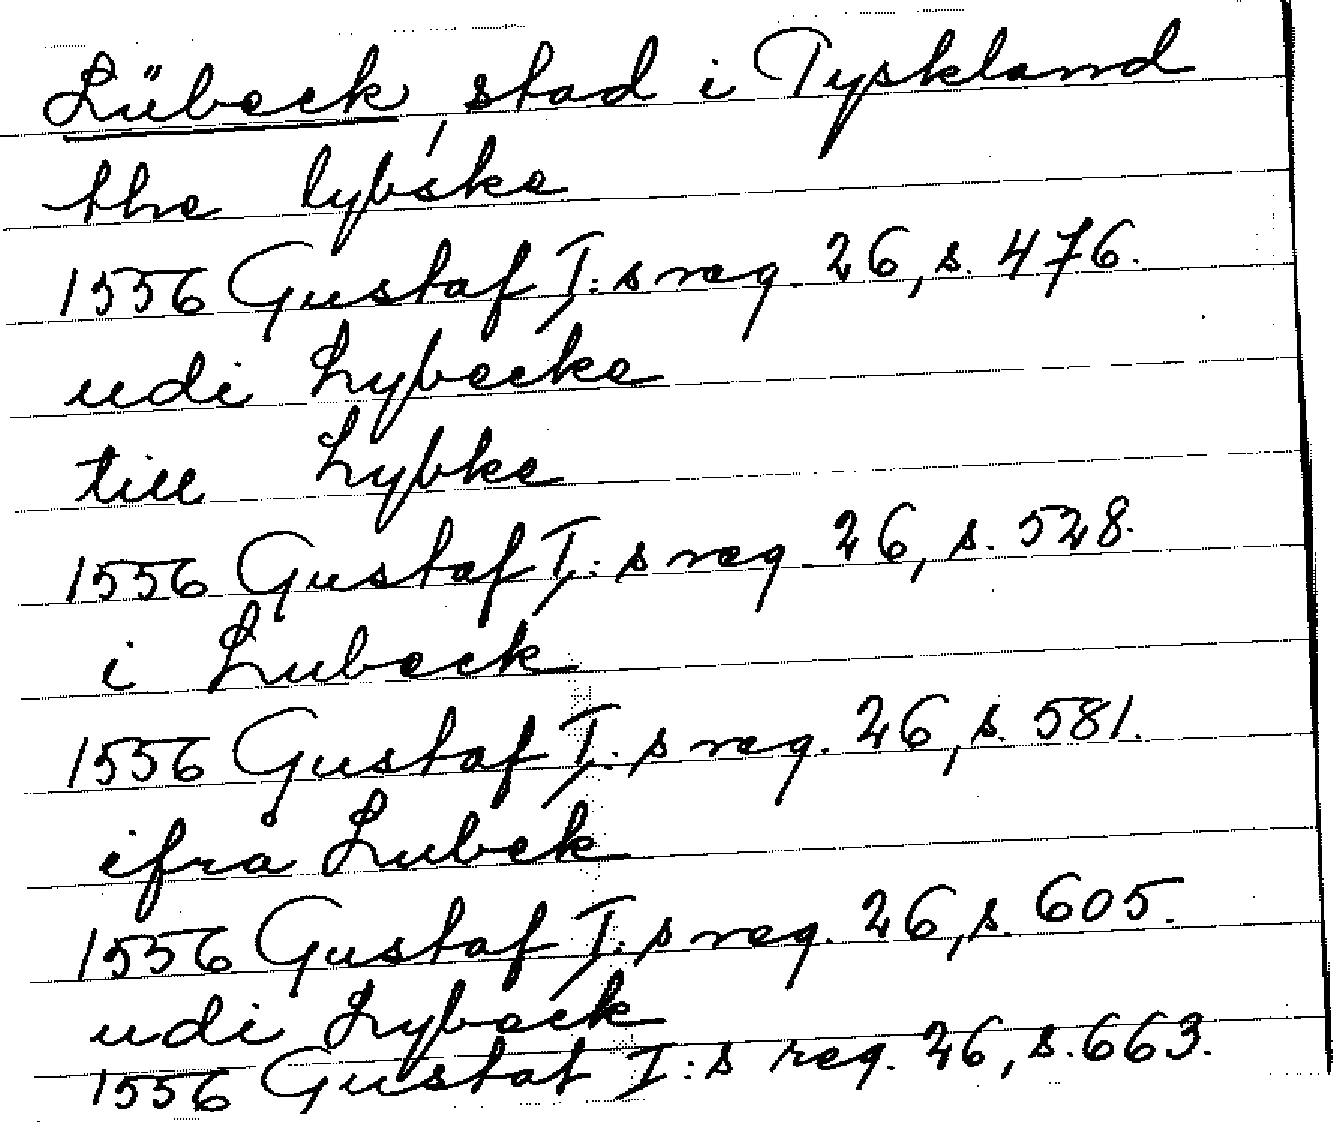 Lübeck, stad i Tyskland
the lybske
1556 Gustaf I:s reg 26, s. 476.
udi Lybecke
till Lybke
1556 Gustaf I:s reg 26, s. 528.
i Lubeck
1556 Gustaf I:s reg. 26, s. 581.
ifrå Lubek
1556 Gustaf I:s reg. 26, s. 605.
udi Lybeck
1556 Gustaf I:s reg. 26, s. 663.